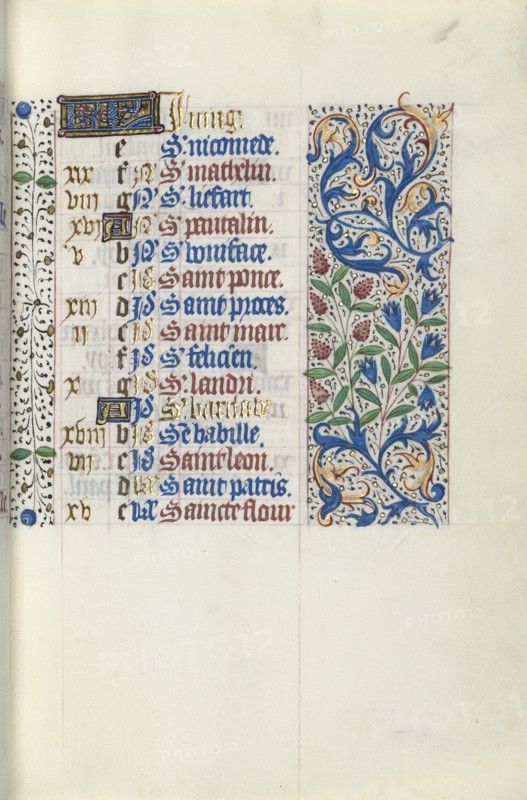 KL Juing.
e S. nicomede.
xix f N S. mathelin.
viii g N S. lifart.
xvi A N S. pantalin.
v b N S. boniface.
c Id Saint ponce.
xiii d Id Saint proces.
ii e Id Saint marc.
f Id S. felicien.
x g Id S. landri.
A Id S. barnabe.
xviii b Id Se babille.
vii c Id Saint leon.
d kl Saint patris.
xv e kl Saincte flour